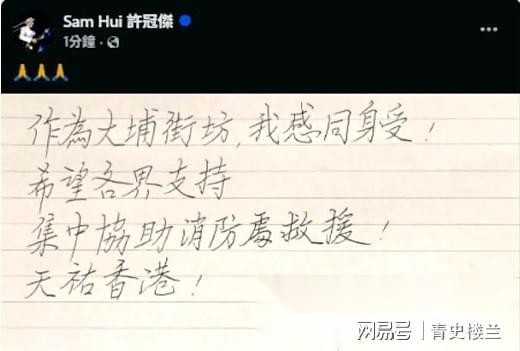 Sam Hui 許冠傑
1分鐘 ·
作為大埔街坊,我感同身受!
希望各界支持
集中協助消防處救援!
天祐香港!
网易号 | 青史楼兰